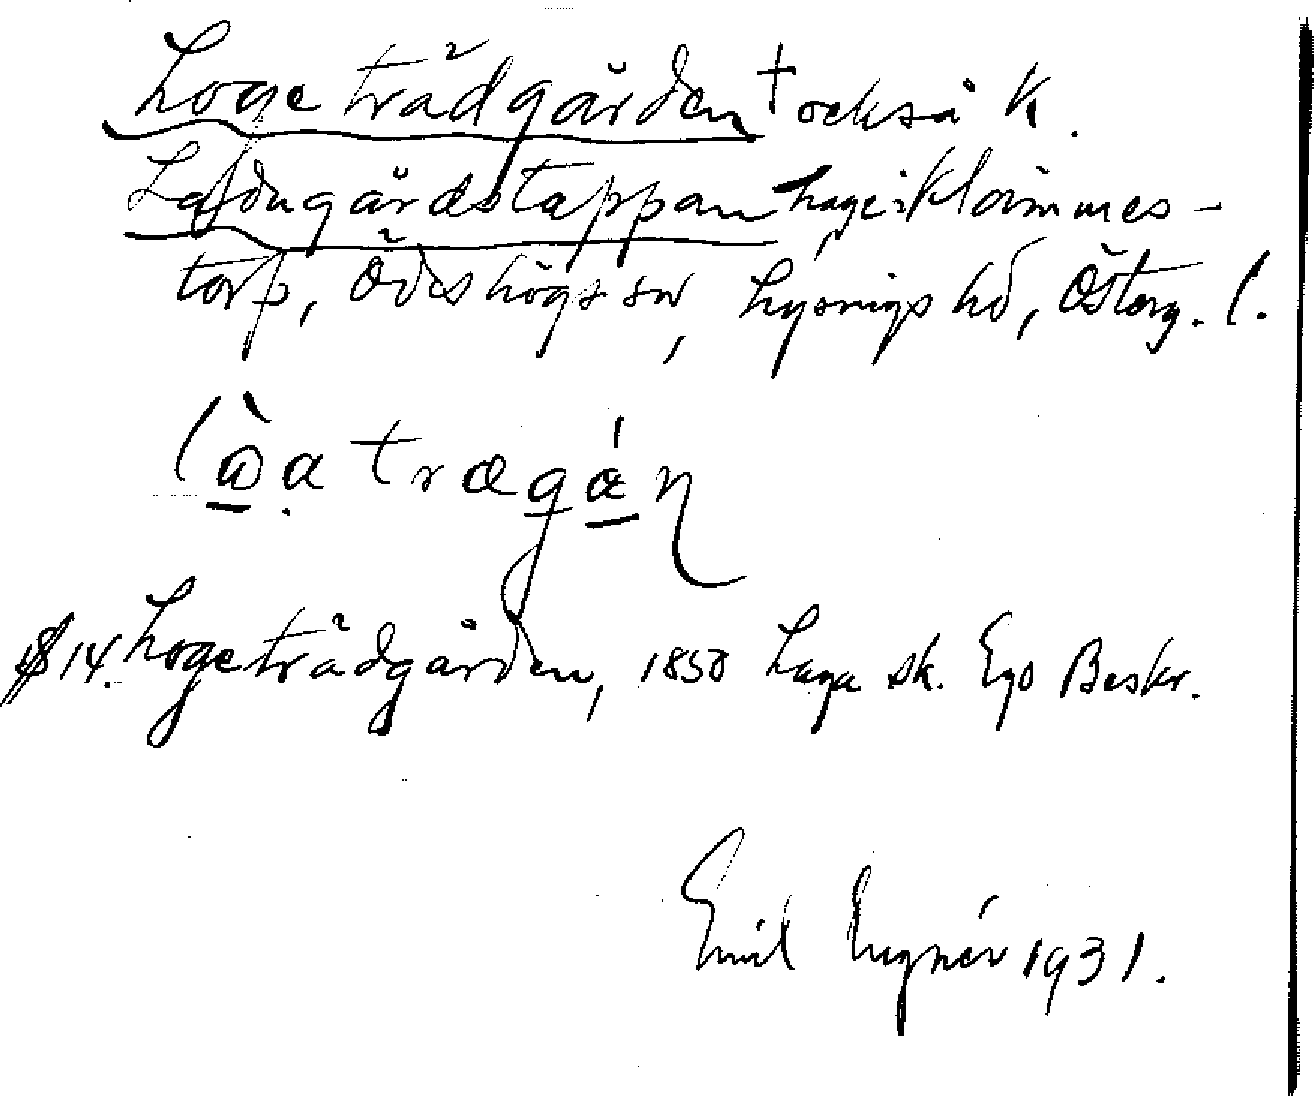 Logeträdgården + också k.
Ladugårdstäppan hage i Klämmes-
torp, Ödeshögs sn, Lysings hd, Österg. l.
§ 14. Logeträdgården, 1850 Laga sk. Ego Beskr.
Emil 1931.